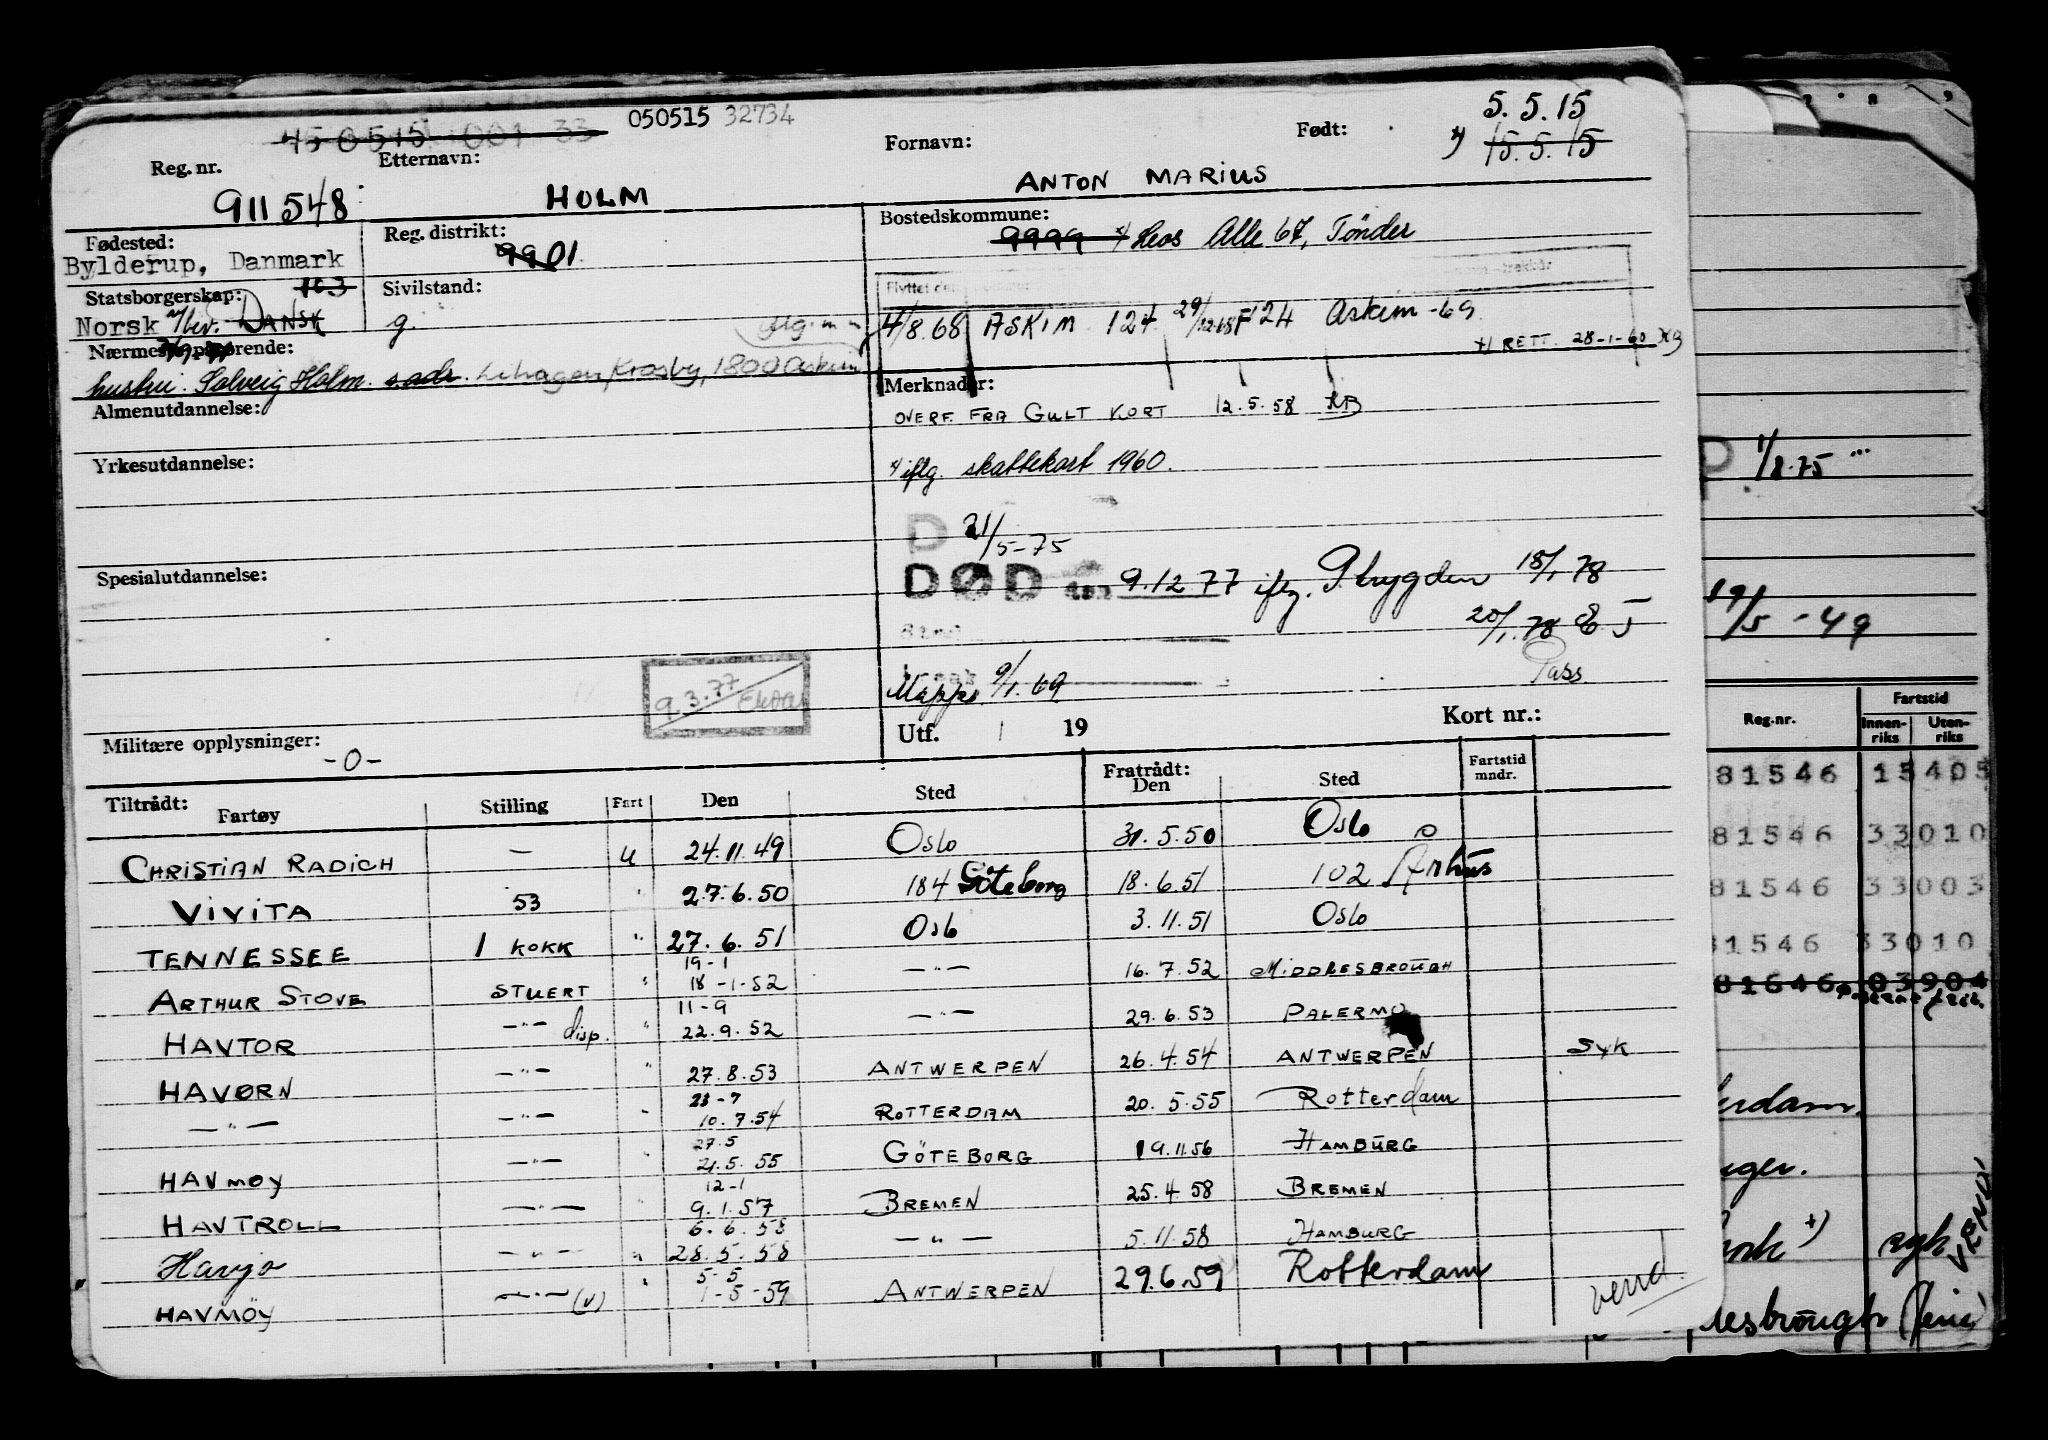 45 0515 001 33 050515 32734
Reg. nr. Etternavn: Fornavn: Født: 5.5.15
911548 HOLM ANTON MARIUS x) 15.5.15
Fødested: Reg. distrikt: Bostedskommune:
Bylderup, Danmark 9901 9999 x/ Leos Alle 67, Tønder
Statsborgerskap: 103 Sivilstand:
Norsk DANSK g.
4/8.68 ASKIM 124 29/12.68 F 124 Askim -69
x/ RETT. 28-1-60 KB
Nærmeste pårørende:
hustru: Solveig Holm. s.adr. Krosby, 1800 Askim
Almenutdannelse: Merknader:
OVERF. FRA GULT KORT 12.5.58 KB
Yrkesutdannelse: x/ iflg. skattekort 1960.
D 21/5-75
Spesialutdannelse: DØD den 9.12 77 iflg. P.trygden 18/1 78
20/1.78
Pass
9.3.77
Mappe 9/1.69
Militære opplysninger: -0- Utf. / 19 Kort nr.:
Tiltrådt: Fartøy Stilling Fart Den Sted Fratrådt: Den Sted Fartstid mndr.
CHRISTIAN RADICH — U 24.11.49 Oslo 31.5.50 Oslo
VIVITA 53 " 27.6.50 184 Göteborg 18.6.51 102 Århus
TENNESSEE 1 KOKK " 27.6.51 Oslo 3.11.51 Oslo
ARTHUR STOVE STUERT " 19-1 18-1-52 —"— 16.7.52 MIDDLESBROUGH
HAVTOR —"— disp. " 11-9 22.9.52 —"— 29.6.53 PALERMO
HAVØRN —"— " 27.8.53 ANTWERPEN 26.4.54 ANTWERPEN SYK
—"— —"— " 23-7 10.7.54 ROTTERDAM 20.5.55 Rotterdam
HAVMØY —"— " 27.5 21.5.55 GÖTEBORG 19.11.56 HAMBURG
HAVTROLL —"— " 12-1 9.1.57 BREMEN 25.4.58 BREMEN
Havjo —"— " 6.6.58 28.5.58 —"— 5.11.58 HAMBURG
HAVMÖY —"— (v) " 5-5 1-5-59 ANTWERPEN 29.6.59 Rotterdam
vend.
1/8.75
19/5-49
Reg.nr. Fartstid
Innen-riks Uten-riks
81546 15405
81546 33010
81546 33003
81546 33010
81646 03904
syk
VEND